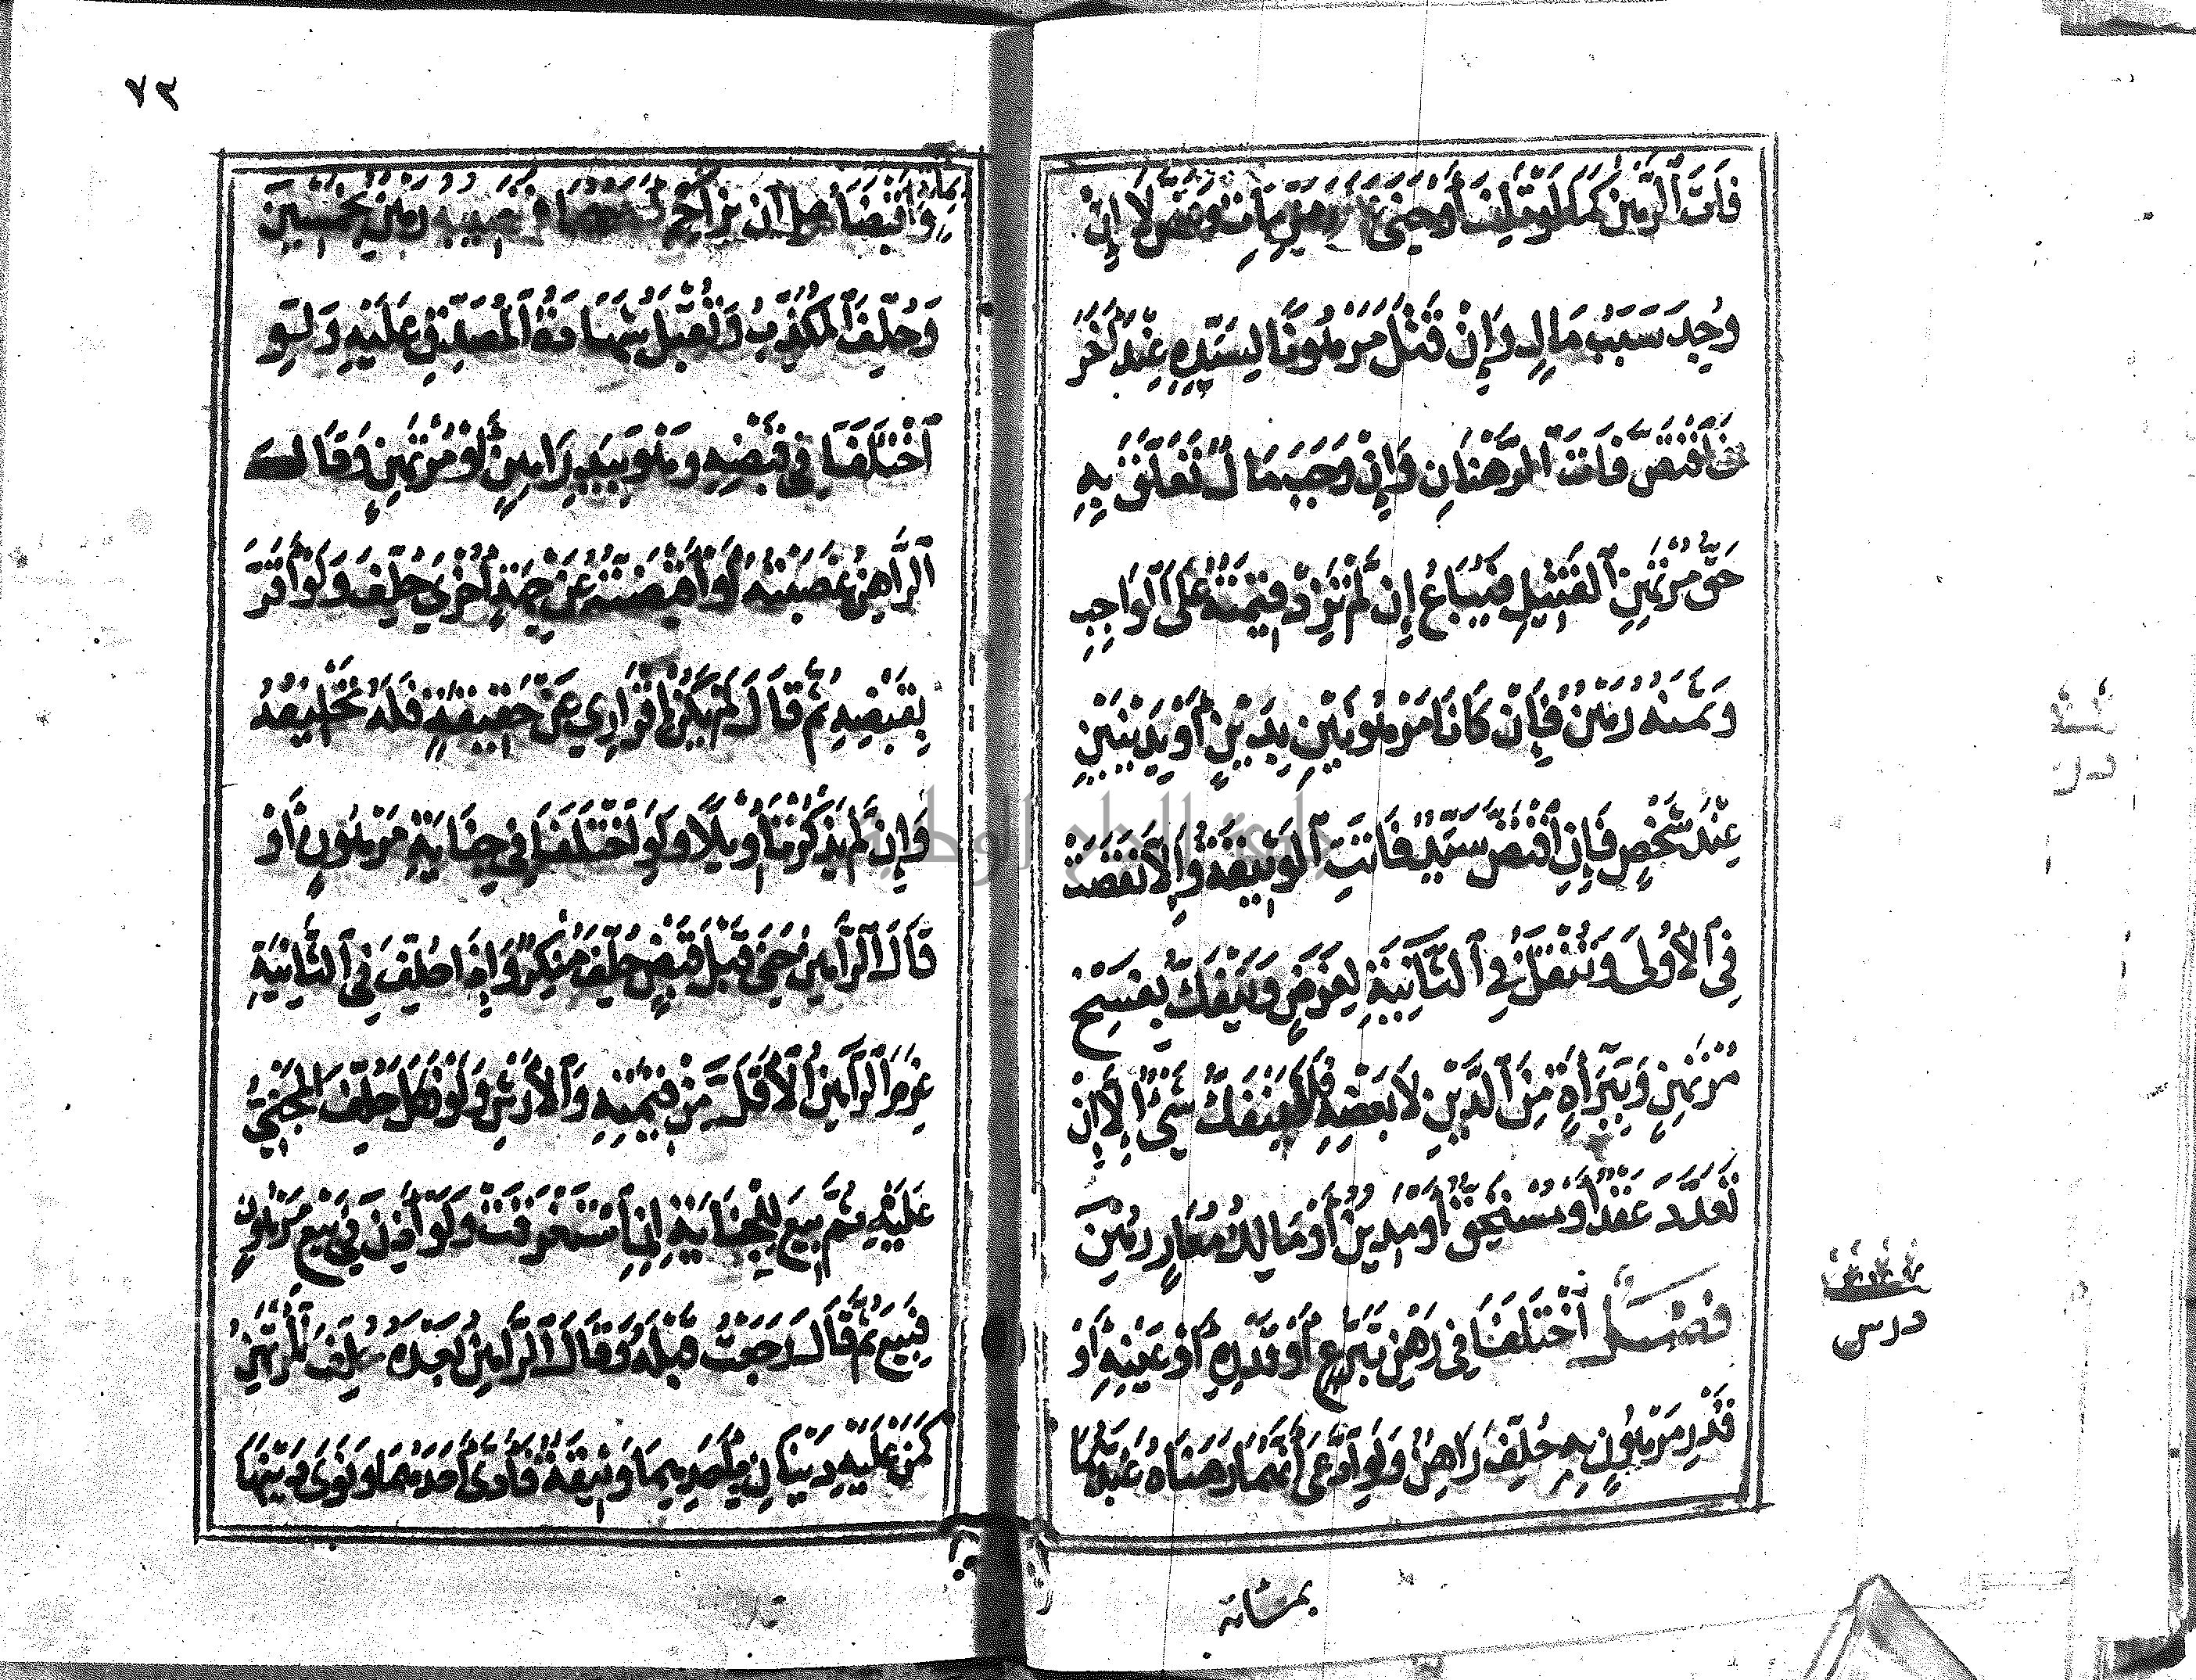 فَاتَ ٱلرَّهْنُ كَمَا لَوْ تَلِفَ أَوْ جَنَى رَهْنٌ مَاتَ وَنَقَصَ لَا إِنْ
وُجِدَ سَبَبُ مَالٍ وَإِنْ قَتَلَ مَرْهُونًا لِسَيِّدِهِ عِنْدَ آخَرَ
فَٱقْتَصَّ فَاتَ ٱلرَّهْنَانِ وَإِنْ وَجَبَ مَالٌ تَعَلَّقَ بِهِ
حَقُّ مُرْتَهِنِ ٱلْقَتِيلِ فَيُبَاعُ إِنْ لَمْ تَزِدْ قِيمَتُهُ عَلَى ٱلْوَاجِبِ
وَثَمَنُهُ رَهْنٌ فَإِنْ كَانَا مَرْهُونَيْنِ بِدَيْنٍ أَوْ بِدَيْنَيْنِ
عِنْدَ شَخْصٍ فَإِنِ ٱقْتَصَّ سَيِّدٌ فَاتَتِ ٱلْوَثِيقَةُ وَإِلَّا نَقَصَتْ
فِي ٱلْأُولَى وَتُنْقَلُ فِي ٱلثَّانِيَةِ لِغَرَضٍ وَيَنْفَكُّ بِفَسْخِ
مُرْتَهِنٍ وَبِبَرَاءَةٍ مِنَ ٱلدَّيْنِ لَا بَعْضِهِ فَلَا يَنْفَكُّ شَيْءٌ إِلَّا إِنْ
تَعَدَّدَ عَقْدٌ أَوْ مُسْتَحِقٌّ أَوْ مَدِينٌ أَوْ مَالِكُ مُعَارٍ رُهِنَ
فَصْلٌ ٱخْتَلَفَا فِي رَهْنِ تَبَرُّعٍ أَوْ قَدْرِهِ أَوْ عَيْنِهِ أَوْ
قَدْرِ مَرْهُونٍ بِهِ حُلِّفَ رَاهِنٌ وَلَوِ ٱدَّعَى أَنَّهُمَا رَهَنَاهُ عَبْدَهُمَا
بمئانة
درس
٧٣
وَأَقْبَضَاهُ وَصَدَّقَهُ أَحَدُهُمَا فَنَصِيبُهُ رَهْنٌ بِخَمْسِينَ
وَحُلِّفَ ٱلْمُكَذِّبُ وَتُقْبَلُ شَهَادَةُ ٱلْمُصَدِّقِ عَلَيْهِ وَلَوِ
ٱخْتَلَفَا فِي قَبْضِهِ وَهُوَ بِيَدِ رَاهِنٍ أَوْ مُرْتَهِنٍ وَقَالَ
ٱلرَّاهِنُ غَصَبْتَهُ أَوْ أَقْبَضْتُهُ عَنْ جِهَةٍ أُخْرَى حُلِّفَ وَلَوْ أَقَرَّ
بِقَبْضِهِ ثُمَّ قَالَ لَمْ يَكُنْ إِقْرَارِي عَنْ حَقِيقَةٍ فَلَهُ تَحْلِيفُهُ
وَإِنْ لَمْ يَذْكُرْ تَأْوِيلًا وَلَوِ ٱخْتَلَفَا فِي جِنَايَةِ مَرْهُونٍ أَوْ
قَالَ ٱلرَّاهِنُ جَنَى قَبْلَ قَبْضٍ حُلِّفَ مُنْكِرٌ وَإِذَا حُلِّفَ فِي ٱلثَّانِيَةِ
غَرِمَ ٱلرَّاهِنُ ٱلْأَقَلَّ مِنْ قِيمَتِهِ وَٱلْأَرْشِ وَلَوْ نَكَلَ حُلِّفَ ٱلْمَجْنِيُّ
عَلَيْهِ ثُمَّ بِيعَ لِلْجِنَايَةِ إِنِ ٱسْتَغْرَقَتْ وَلَوْ أَذِنَ فِي بَيْعِ مَرْهُونٍ
فَبِيعَ ثُمَّ قَالَ رَجَعْتُ قَبْلَهُ وَقَالَ ٱلرَّاهِنُ بَعْدَهُ حُلِّفَ ٱلْمُرْتَهِنُ
كَمَنْ عَلَيْهِ دَيْنَانِ بِأَحَدِهِمَا وَثِيقَةٌ فَأَدَّى أَحَدَهُمَا وَنَوَى دَيْنَهَا